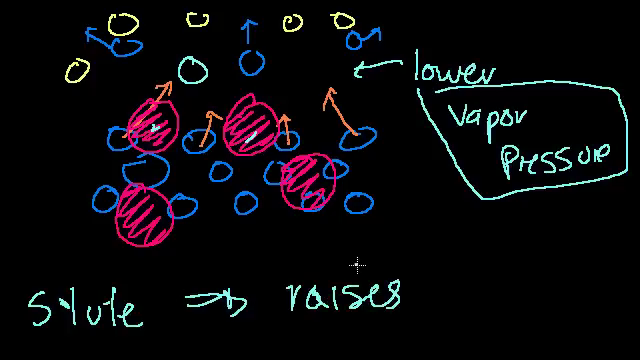 lower
Vapor
Pressure
Solute => raises